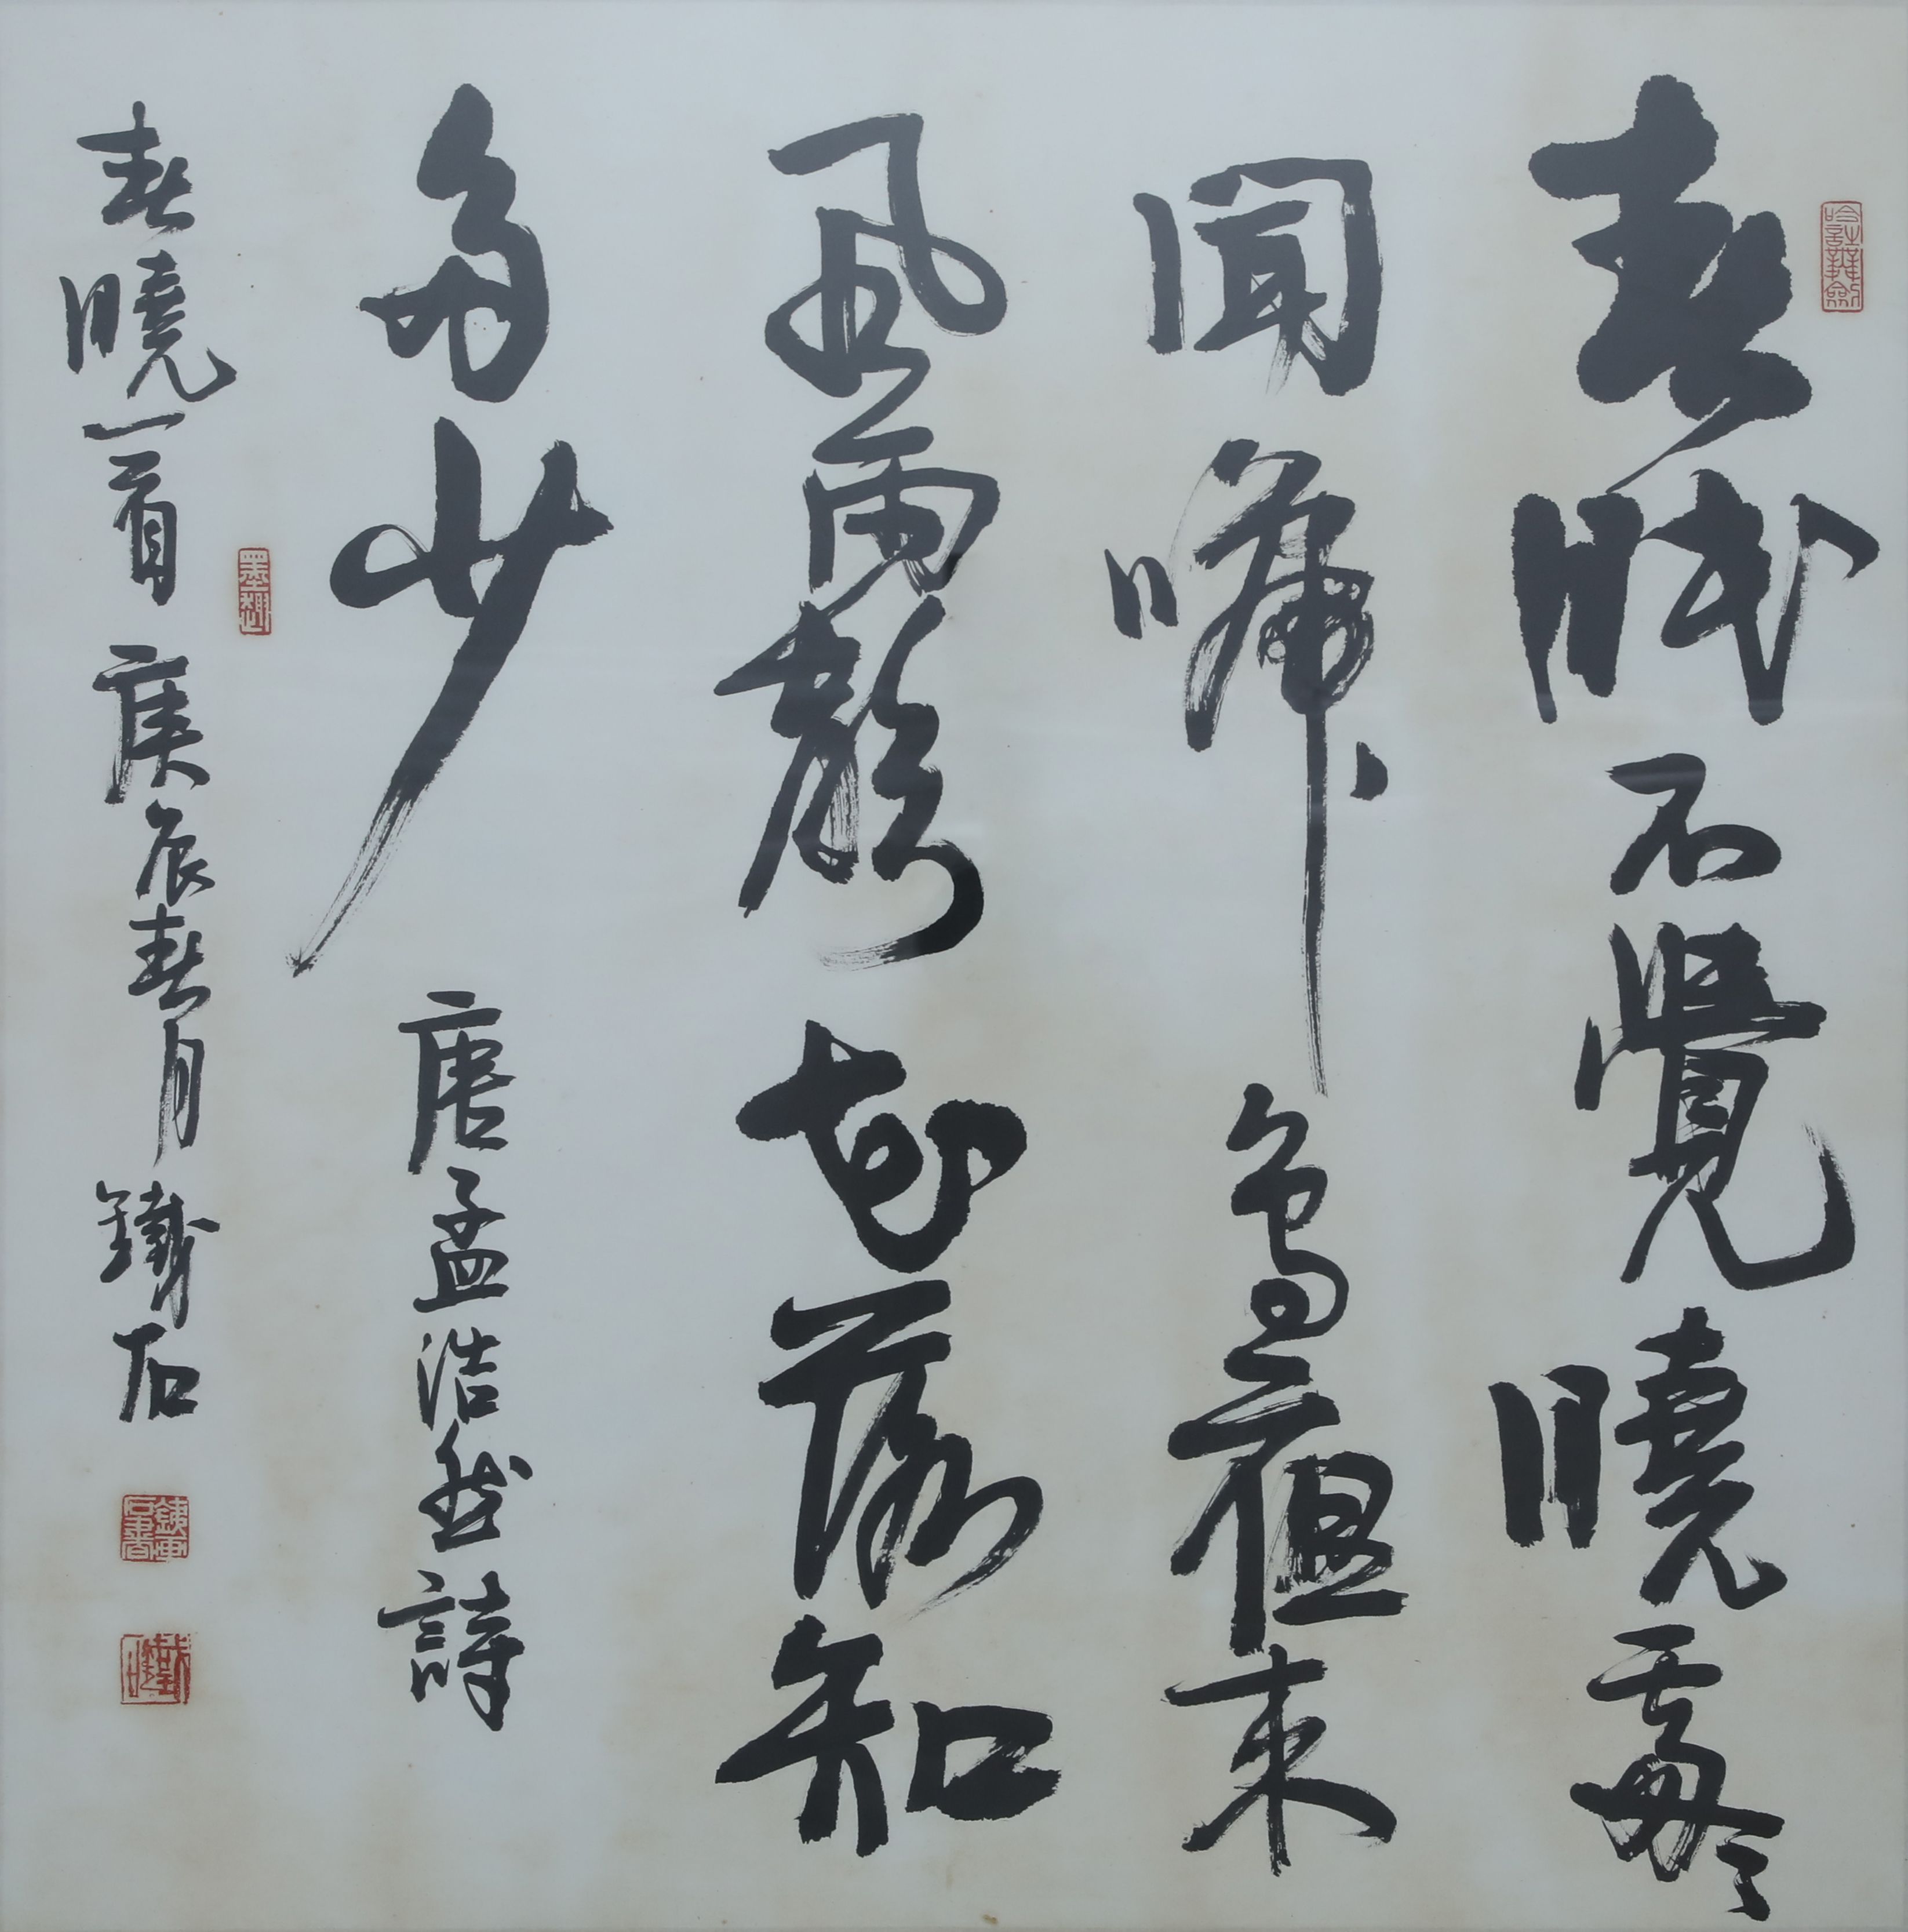 吟詩舞劍
春眠不覺曉處々
聞啼鳥夜來
風雨聲花落知
多少 唐孟浩然詩
墨趣
春曉一首 庚辰春月 鐵石